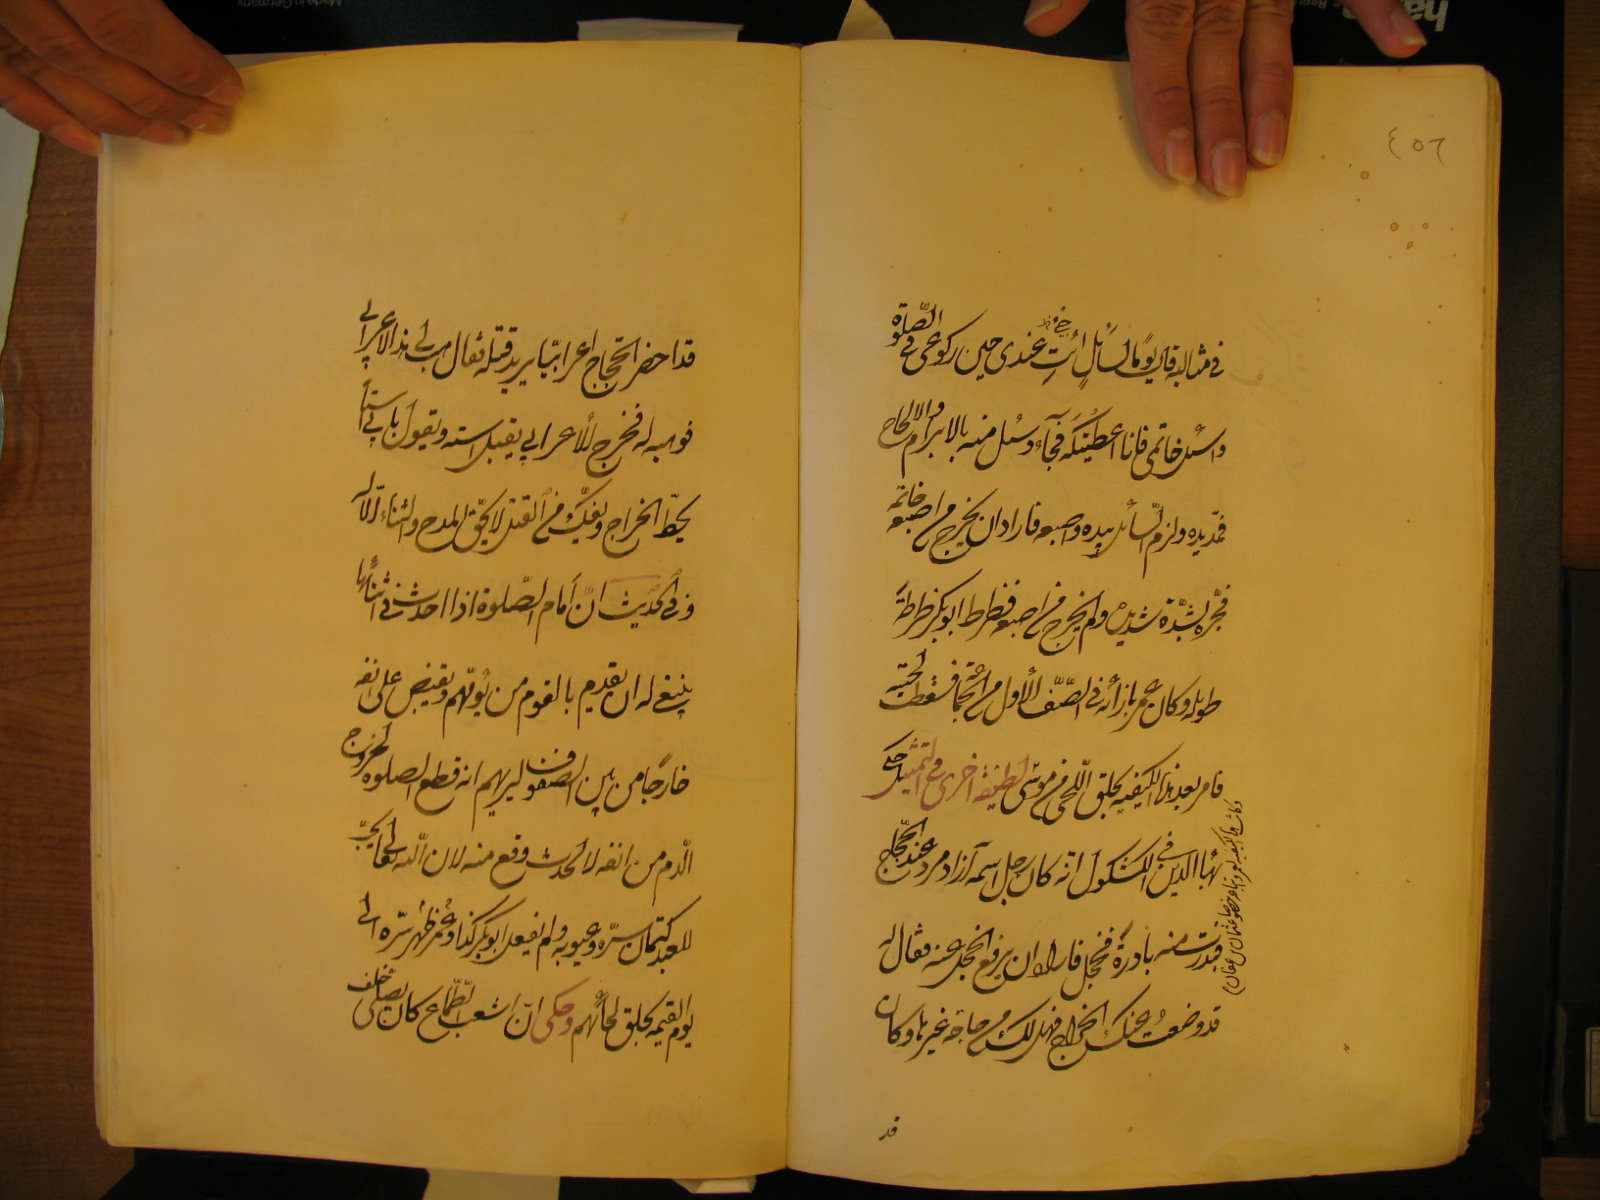 ٤٥٦
في مثاله قال يوما لسائل ائت عندي حين ركوعي في الصلوة
واسئل خاتمي فانا اعطيتكه فجاء وسئل منه بالابرام والالحاح
فمد يده ولزم السائل بيده واصبعه فاراد ان يخرج من اصبعه خاتمه
فجره بشدة شديدة ولم يخرج من اصبعه فضرط ابو بكر ضرطة
طويلة وكان عمر بازائه في الصف الاول من فسقطت لحيته
فامر بعد هذا الكيفية بحلق اللحى من موسى لطيفة اخرى في التمثيل حكى
بهاء الدين في الكشكول انه كان رجل اسمه آزاد مرد عند الحجاج
فبدرت منه بادرة فخجل فاراد ان يرفع الخجل عنه فقال له
قد وضعت عنك الخراج فهل لك من حاجة غيرها وكان
قد
قد احضر الحجاج اعرابيا يريد قتله فقال هب لي هذا الاعرابي
فوهبه له فخرج الاعرابي يقبل استه ويقول بابي استا
يحط الخراج ويفك من القتل لا يحق المدح والثناء الا له
وفي الحديث ان امام الصلوة اذا احدث في اثنائها
ينبغي له ان يقدم بالقوم من يؤمهم ويقبض على انفه
خارجا من بين الصفوف ليريهم انه قطع الصلوة لخروج
الدم من انفه لا لحدث وقع منه لان الله تعالى يحب
للعبد كتمان سره وعيوبه ولم يفعل ابو بكر كذا وعمر ظهر سره الى
يوم القيمة بحلق لحائهم وحكى ان اشعب الطماع كان يصلي خلف